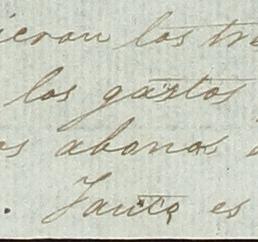 ieron los tre
los gastos
os abonos
. Tanto es